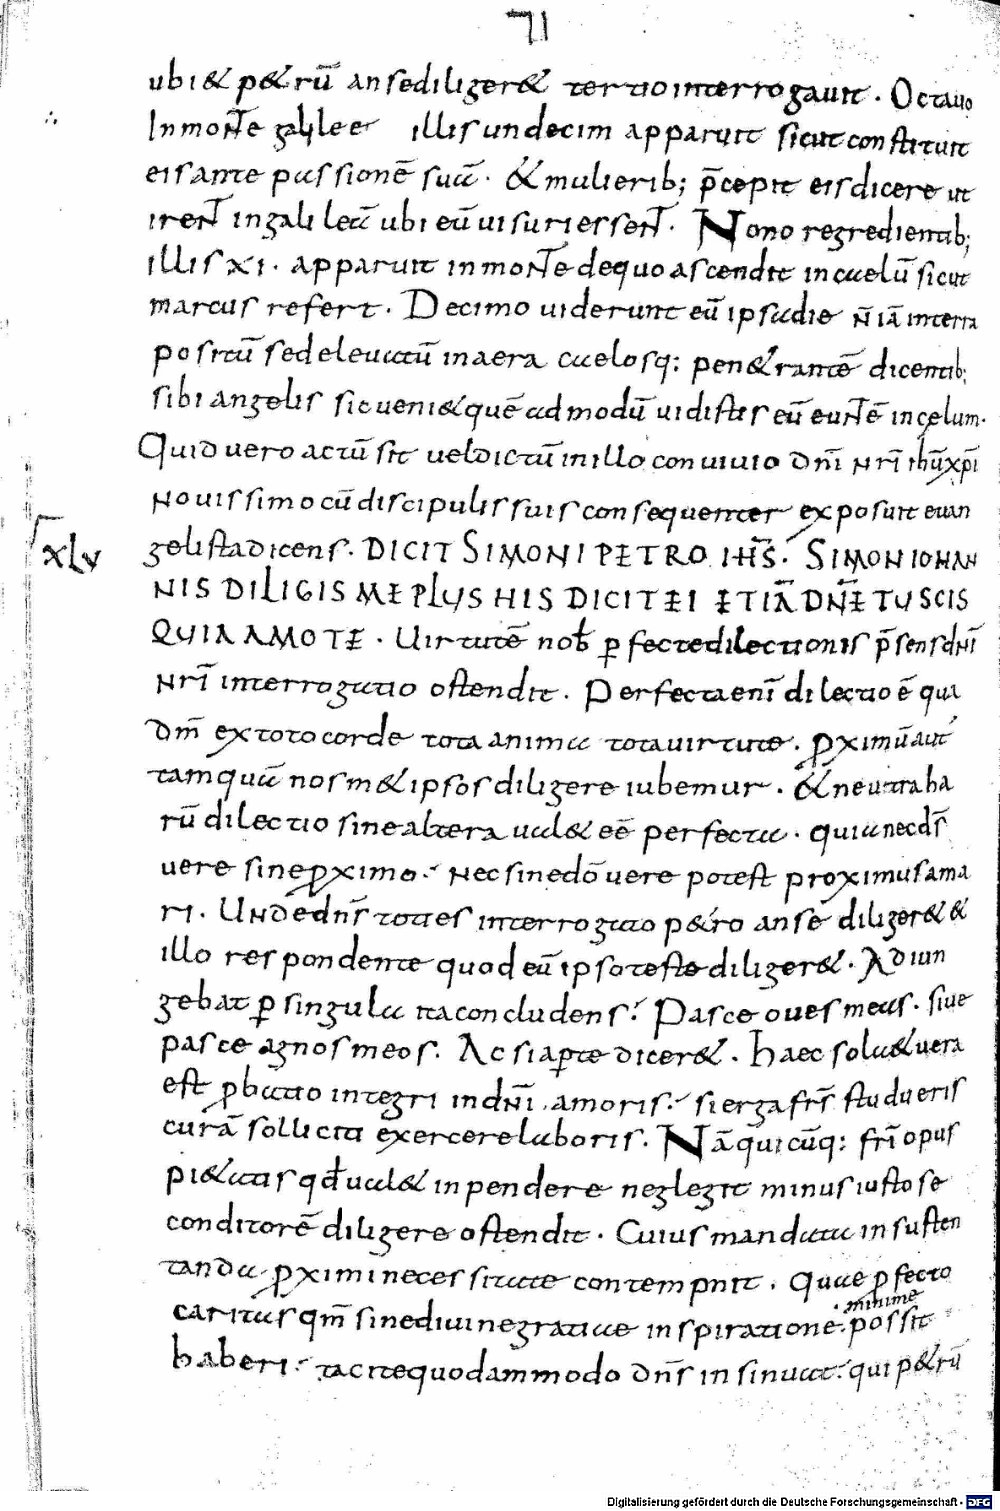 71
ubi & p&rū an se diliger& tertio interrogauit. Octauo
In monte galilee illis undecim apparuit sicut constituit
eis ante passionē suā. & mulierib; p̄cepit eis dicere ut
irent in galileā ubi eū uisuri essent. Nono regredientib;
illis xi. apparuit in monte de quo ascendit in caelū sicut
marcus refert. Decimo uiderunt eū ipsa die n̄ iā in terra
positū sed eleuatū in aera caelosq: pen&rantē dicentib;
sibi angelis sic ueni& quē admodū uidistis eū euntē in cęlum.
Quid uero actū sit uel dictū in illo conuiuio dn̄i nr̄i ihū xp̄i
nouissimo cū discipulis suis consequenter exposuit euan
xlv
gelista dicens. DICIT SIMONI PETRO IHS̄. SIMON IOHAN
NIS DILIGIS ME PLUS HIS DICIT EI ETIĀ DN̄E TU SCIS
QUIA AMO TE. Uirtutē nob̄ ꝑfecte dilectionis p̄sens dn̄i
nr̄i interrogatio ostendit. Perfecta enī dilectio ē qua
dm̄ ex toto corde tota anima tota uirtute. ꝓximū aut̄
tamquā nosm&ipsos diligere iubemur. & neutra ha
rū dilectio sine altera ual& eē perfecta. quia nec ds̄
uere sine ꝓximo. nec sine dō uere potest proximus ama
ri. Unde dn̄s toties interrogato p&ro an se diliger& &
illo respondente quod eū ipso teste diliger&. Adiun
gebat ꝑ singula ita concludens. Pasce oues meas. siue
pasce agnos meos. Ac si aꝑte dicer&. Haec sola & uera
est ꝓbatio integri in dn̄i amoris. si erga frs̄ studueris
curā solliciti exercere laboris. Nā quicūq: fr̄i opus
pi&atis qđ ual& inpendere neglegit minus iusto se
conditorē diligere ostendit. Cuius mandata in susten
tanda ꝓximi necessitate contempnit. Quae ꝑfecto
caritas qm̄ sine diuinę gratiae inspiratione. minime possit
haberi. tacite quodammodo dn̄s insinuat. qui p&rū
Digitalisierung gefördert durch die Deutsche Forschungsgemeinschaft - DFG